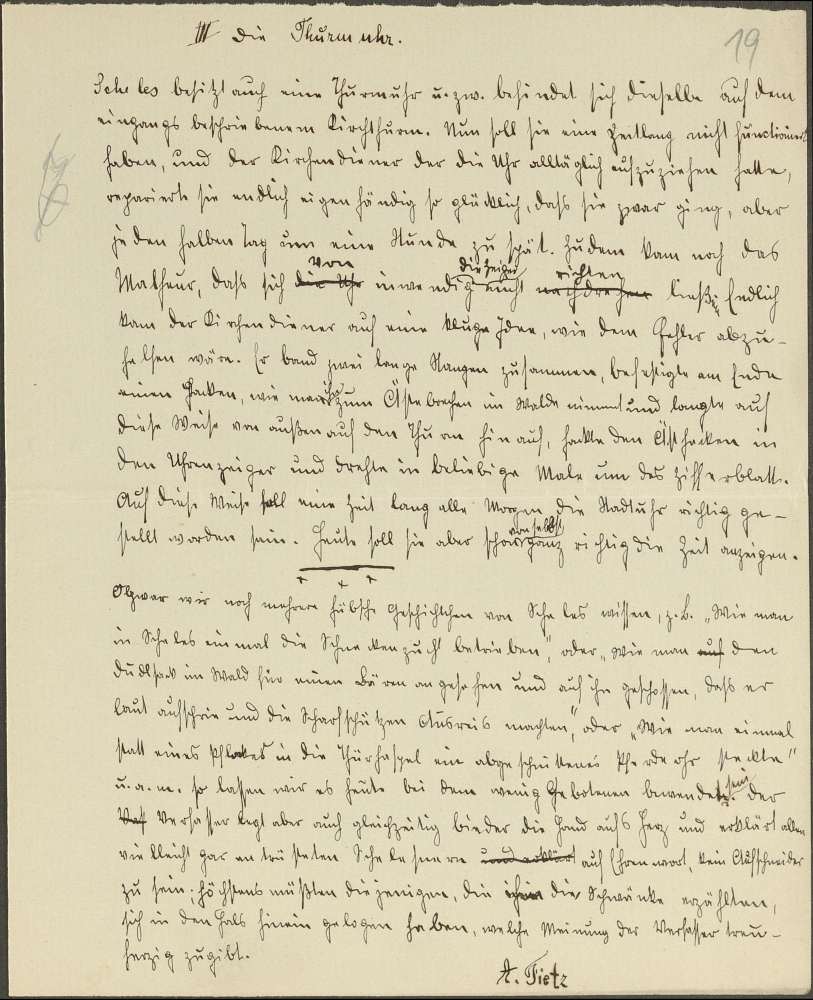 III Die Thurmuhr.
19
Scheles besitzt auch eine Thurmuhr u. zw. befindet sich dieselbe auf dem
eingangs beschriebenen Kirchthurm. Nun soll sie eine Zeitlang nicht functioniert
haben, und der Kirchendiener der die Uhr alltäglich aufzuziehen hatte,
reparierte sie endlich eigenhändig so glücklich, dass sie zwar ging, aber
jeden halben Tag um eine Stunde zu spät. Zudem kam noch das
von die Zeiger richten
Malheur, dass sich die Uhr inwendig nicht nachdrehen ließ. Endlich
kam der Kirchendiener auf eine kluge Idee, wie dem Fehler abzu-
helfen wäre. Er band zwei lange Stangen zusammen, befestigte am Ende
einen Hacken, wie man ihn zum Ästebrechen im Walde nimmt und langte auf
diese Weise von außen auf den Thurm hinauf, hackte den Ästhacken in
den Uhrenzeiger und drehte in beliebige Male um das Zifferblatt.
Auf diese Weise soll eine Zeit lang alle Morgen die Stadtuhr richtig ge-
von selbst
stellt worden sein. Heute soll sie aber schon ganz richtig die Zeit anzeigen.
Obzwar wir noch mehrere hübsche Geschichtchen von Scheles wissen, z. B. „Wie man
in Scheles einmal die Schneckenzucht betrieben", oder „Wie man auf den
Dudlsack im Wald für einen Bären angesehen und auf ihn geschossen, dass er
laut aufschrie und die Scharfschützen Ausreis machten", oder „Wie man einmal
statt eines Pflockes in die Thürhaspel ein abgeschnittenes Pferdeohr steckte"
u. a. m. so lassen wir es heute bei dem wenig Gebotenen bewendet sein. Der
Verfasser legt aber auch gleichzeitig bieder die Hand aufs Herz und erklärt allen
vielleicht gar entrüsteten Schelesnern und erklärt auf Ehrenwort, kein Aufschneider
zu sein; höchstens müßten diejenigen, die ihm die Schwänke erzählten,
sich in den Hals hinein gelogen haben, welche Meinung der Verfasser treu-
herzig zugibt.
A. Tietz